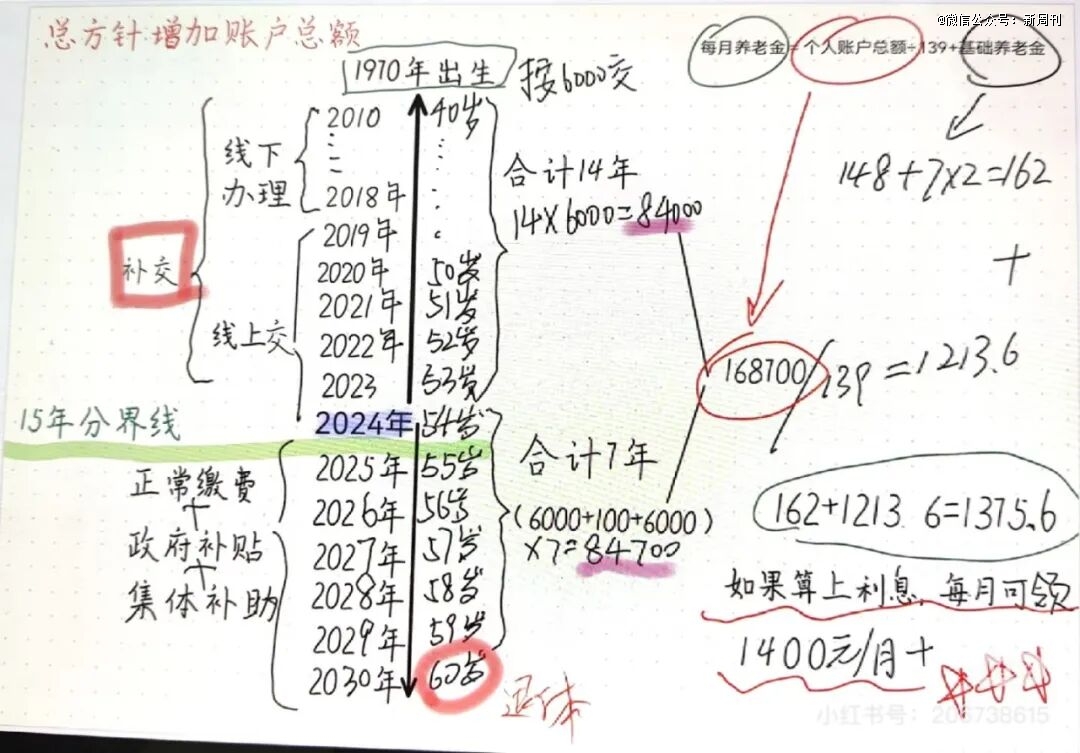 @微信公众号：新周刊
总方针:增加账户总额
每月养老金=个人账户总额÷139+基础养老金
1970年出生 按6000交
2010 40岁
2018年
2019年
2020年 50岁
2021年 51岁
2022年 52岁
2023 53岁
2024年 54岁
2025年 55岁
2026年 56岁
2027年 57岁
2028年 58岁
2029年 59岁
2030年 60岁
退休
线下
办理
补交
线上交
15年分界线
正常缴费
+
政府补贴
+
集体补助
合计14年
14×6000=84000
合计7年
(6000+100+6000)
×7=84700
148+7×2=162
+
168700/139=1213.6
162+1213.6=1375.6
如果算上利息,每月可领
1400元/月+
小红书号：206738615